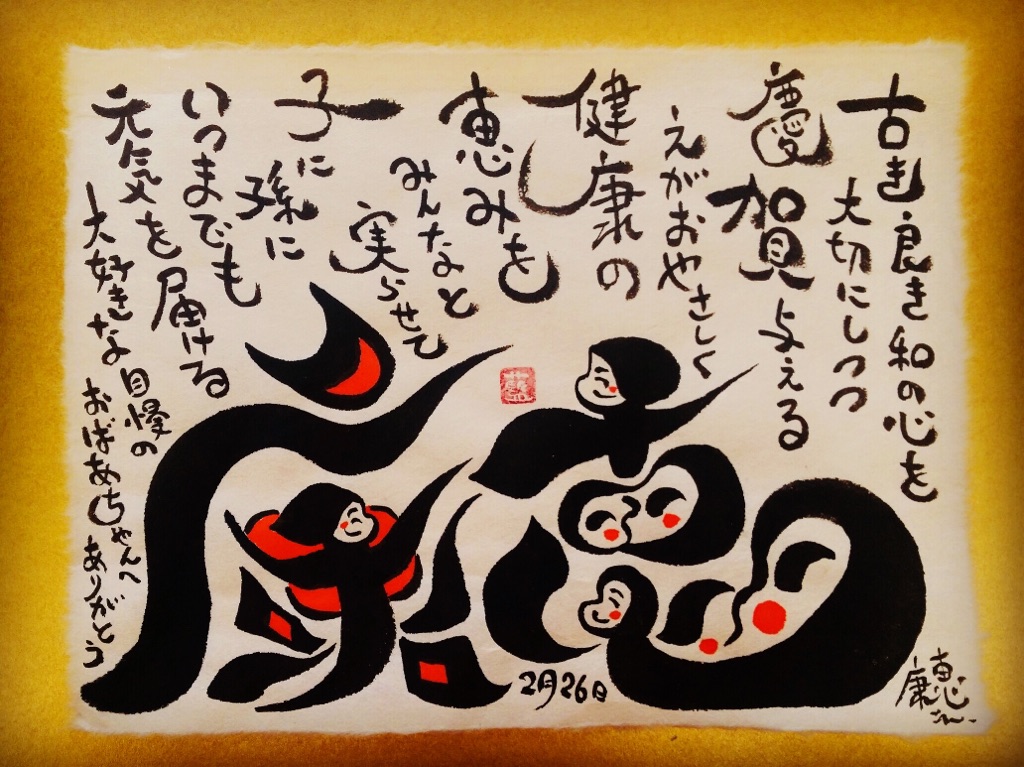 古き良き和の心を
大切にしつつ
慶賀与える
えがおやさしく
健康の
恵みを
みんなと
実らせて
子に
孫に
いつまでも
元気を届ける
自慢の
大好きな おばあちゃんへ ありがとう
康恵
2月26日
恵
康